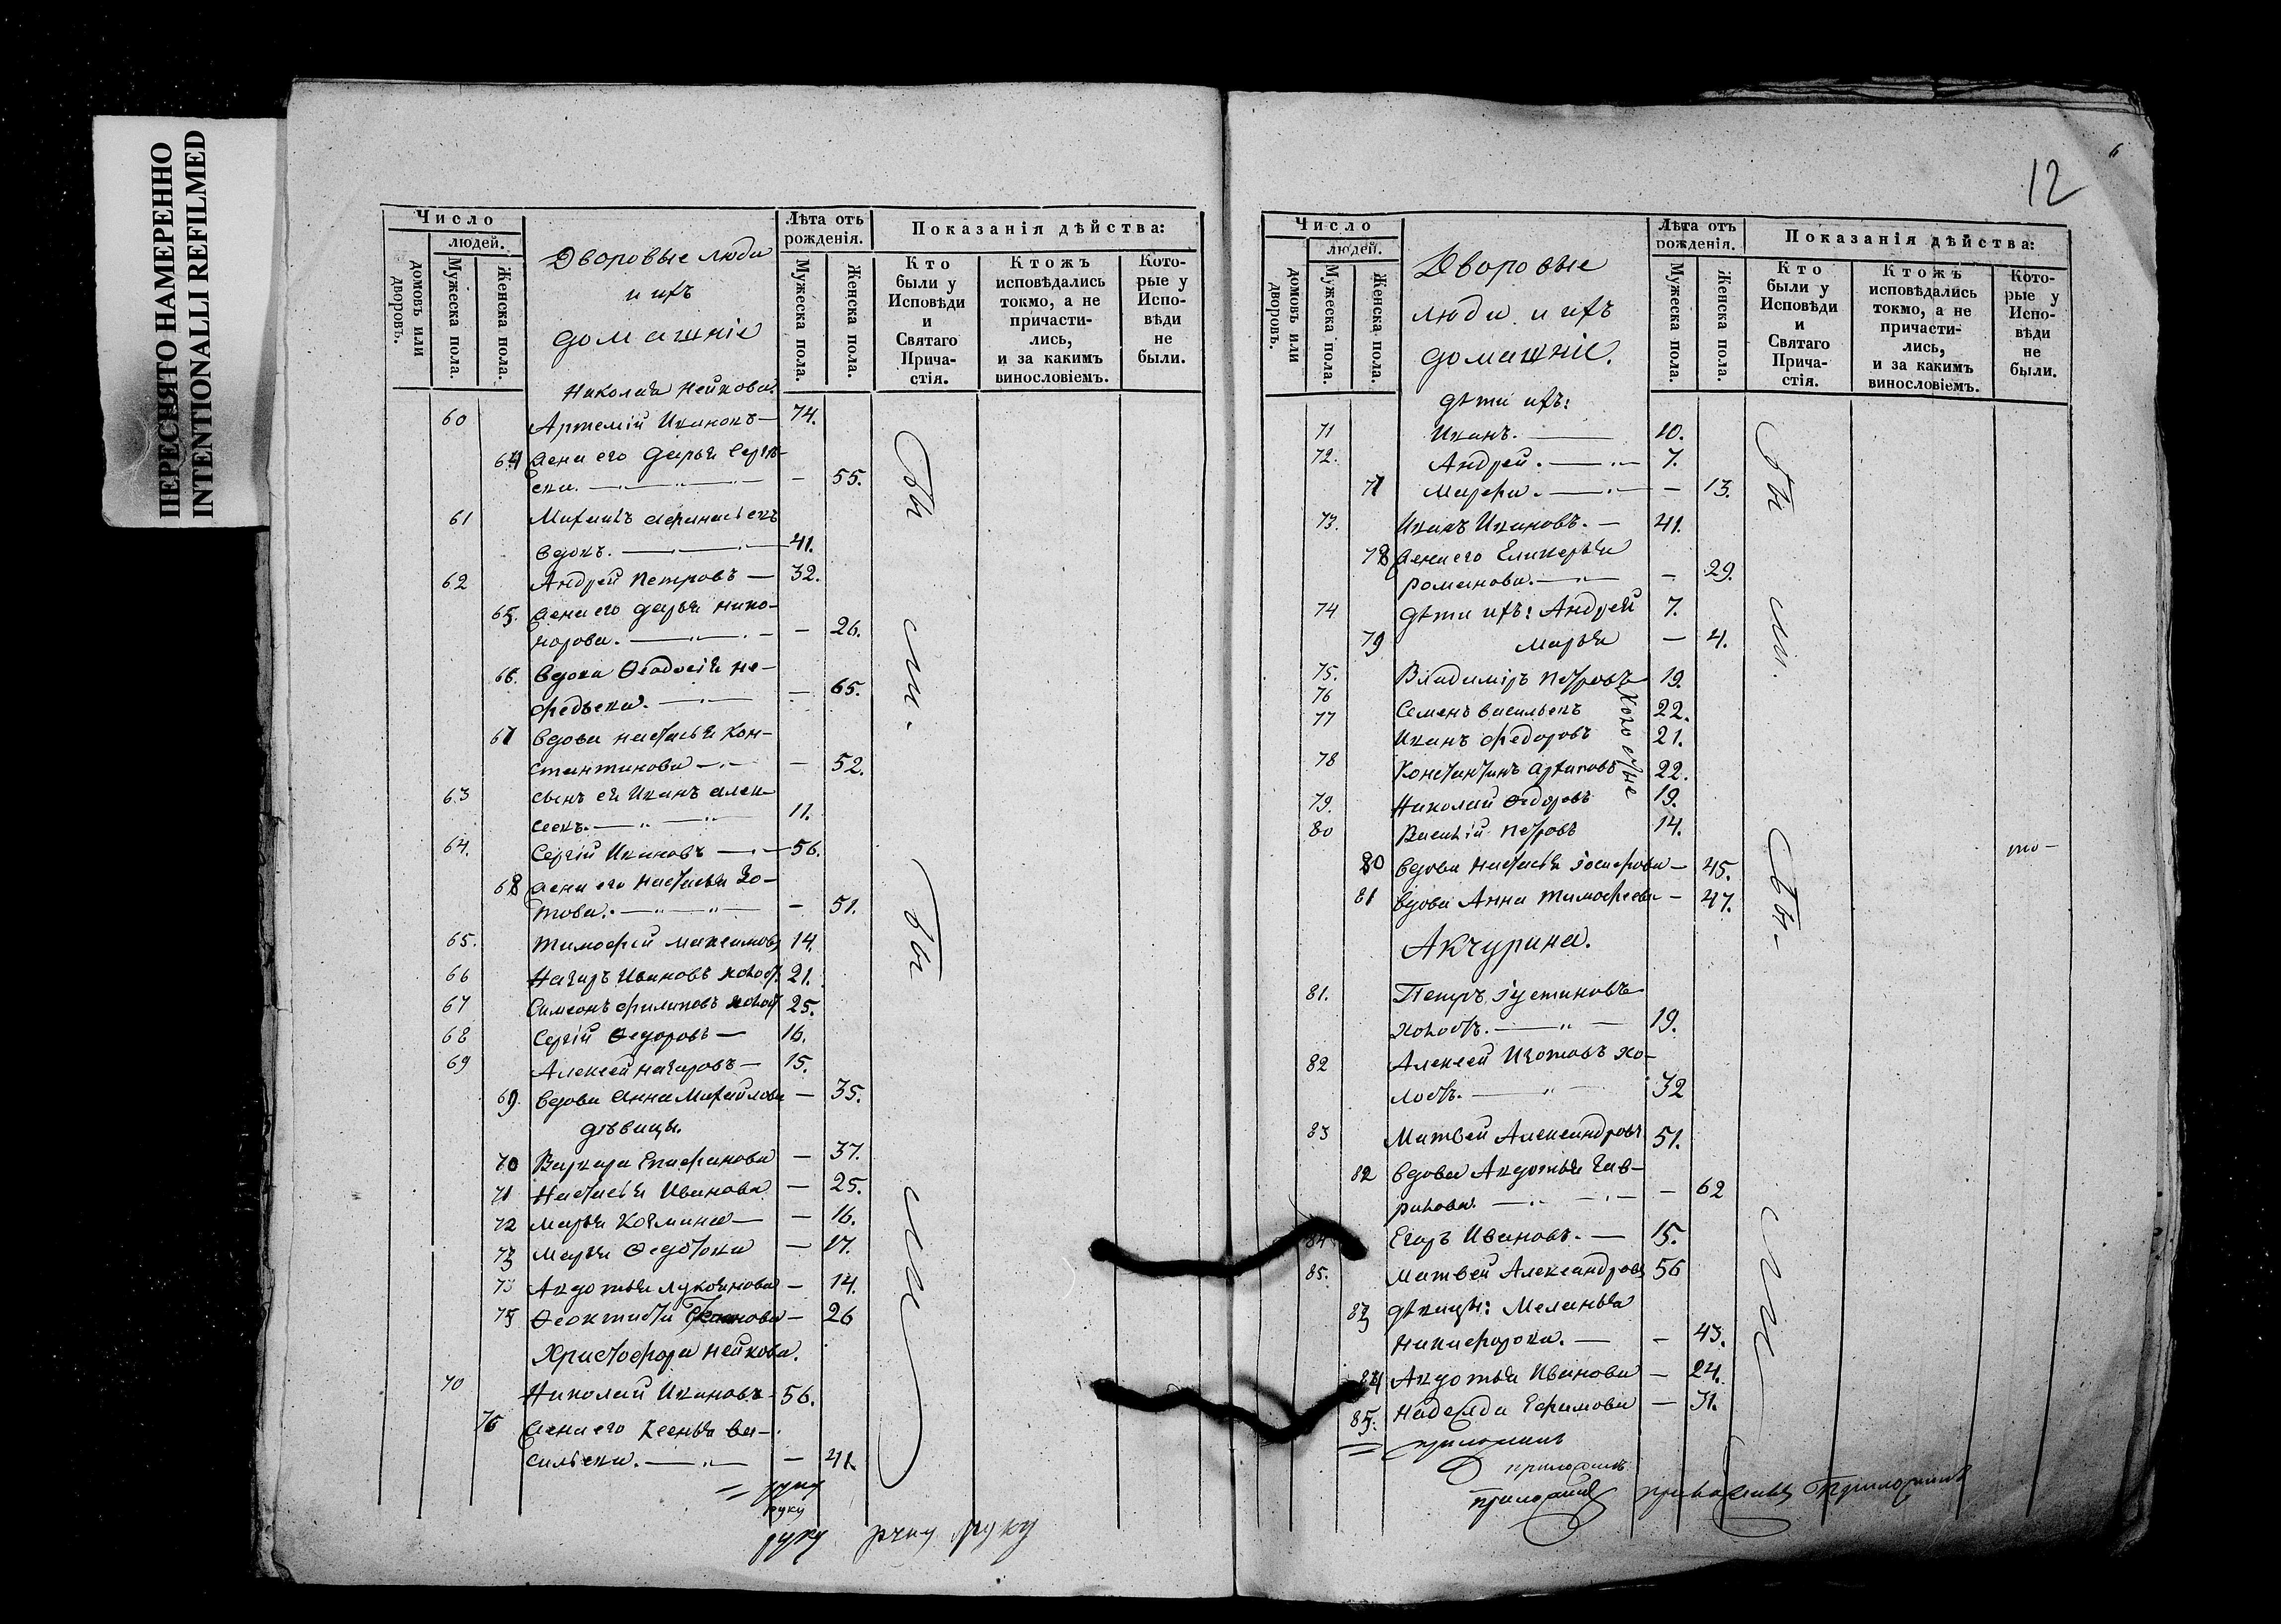 ПЕРЕСНЯТО НАМЕРЕННО
INTENTIONALLI REFILMED
Число
людей.
домовъ или дворовъ.
Мужеска пола.
Женска пола.
Дворовые люди
и ихъ
домашніе
Лѣта отъ рожденія.
Мужеска пола.
Женска пола.
Показанія дѣйства:
Кто были у Исповѣди и Святаго Прича-стія.
Ктожъ исповѣдались токмо, а не причасти-лись, и за какимъ винословіемъ.
Кото-рые у Испо-вѣди не были.
Николая Нейкова.
60 Артемій Ивановъ — 74.
64 Жена его Дарья Сергѣ-
ева. — 55.
61 Михаилъ Афанасьевъ
вдовъ. — 41.
62 Андрей Петровъ — 32.
65. Жена его Дарья Нико-
норова. — 26.
66. Вдова Ѳеодосія Не-
федьева. — 65.
67 Вдова Настасья Кон-
стантинова — 52.
63 сынъ ея Иванъ Алек-
сеевъ. — 11.
64. Сергій Ивановъ — 56.
68 Жена его Настасья Зо-
това. — 51.
65. Тимофей Максимовъ 14.
66 Назаръ Ивановъ холост. 21.
67 Симеонъ Филиповъ холост 25.
68 Сергій Ѳедоровъ — 16.
69 Алексей Назаровъ — 15.
69. Вдова Анна Михайлова — 35.
дѣвицы.
70 Варвара Епифанова — 37.
71 Настасья Иванова — 25.
72 Марья Козмина — 16.
73 Марья Ѳедотова — 17.
73 Авдотья Лукоянова — 14.
75 Ѳеоктиста — 26
Христофора Нейкова.
70 Николай Ивановъ 56.
76 Жена его Ксенья Ва-
сильева. — 41.
Бы
ли.
Бы
ли
руку
руку
руку руку руку
12
6
Число
людей.
домовъ или дворовъ.
Мужеска пола.
Женска пола.
Дворовые
люди и ихъ
домашніе.
Лѣта отъ рожденія.
Мужеска пола.
Женска пола.
Показанія дѣйства:
Кто были у Исповѣди и Святаго Прича-стія.
Ктожъ исповѣдались токмо, а не причасти-лись, и за какимъ винословіемъ.
Кото-рые у Испо-вѣди не были.
дѣти ихъ:
71 Иванъ. — 10.
72. Андрей. — 7.
77 Марфа. — 13.
73. Иванъ Ивановъ. — 41.
78 Жена его Гликерья
Романова. — 29.
74 дѣти ихъ: Андрей 7.
79 Марья — 4.
75. Владиміръ Петровъ 19.
76 Семенъ Васильевъ 22.
77 Иванъ Федоровъ 21.
78 Константинъ Архиповъ 22.
79. Николай Ѳедоровъ 19.
80 Василій Петровъ 14.
Холостые
80 Вдова Настасья Іосифова — 45.
81 Вдова Анна Тимофеева — 47.
Акчурина.
81. Петръ Іустиновъ
холостъ. — 19.
82 Алексей Изотовъ хо-
лостъ. — 32
83 Матвей Александровъ 51.
82 Вдова Авдотья Гав-
рилова. — 62
84 Егоръ Ивановъ. — 15.
85. Матвей Александровъ 56
83 дѣвицы: Меланья
Никифорова. — 43.
84 Авдотья Иванова — 24.
85. Надежда Ефимова — 31.
Бы
ли.
Бы-
ли
приложилъ
приложилъ
приложилъ приложилъ приложилъ